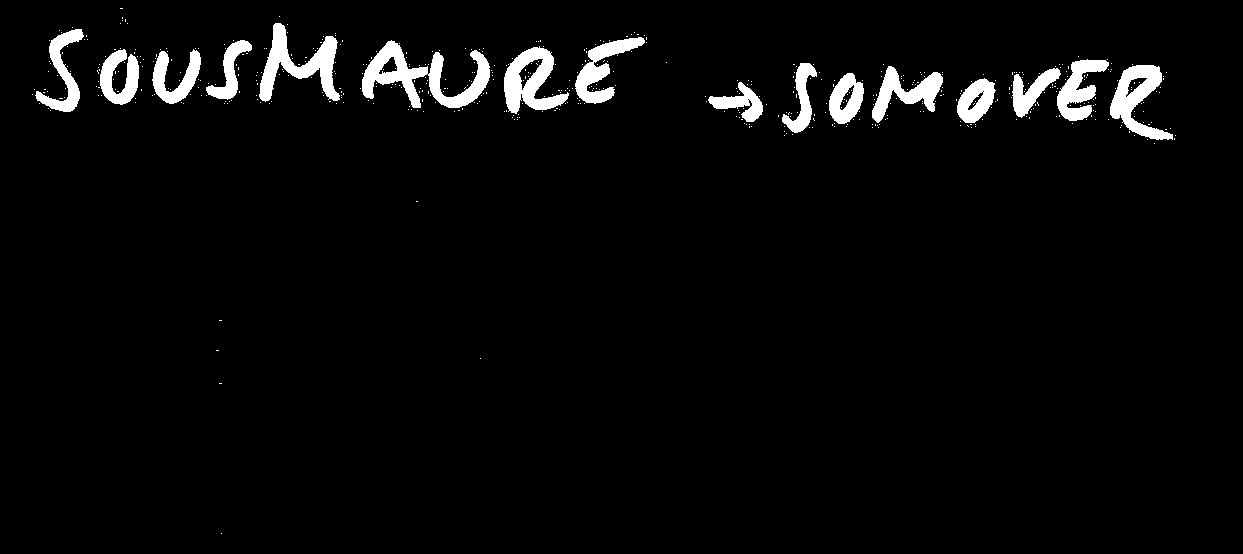 SOUSMAURE → SOMOVER